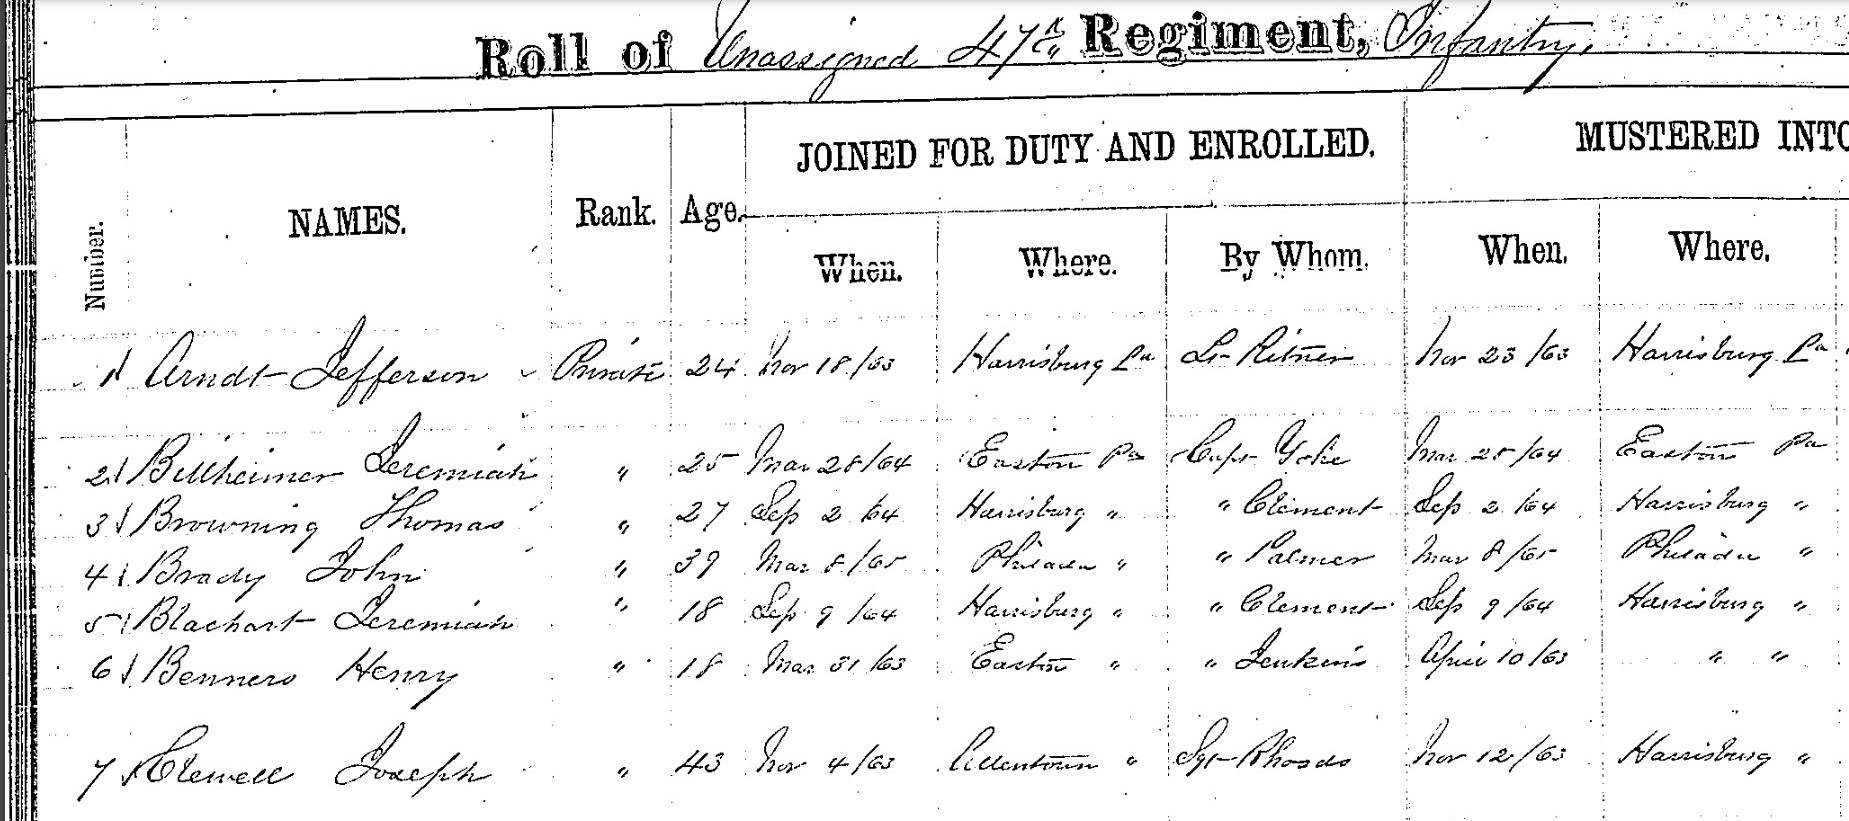 Roll of Unassigned 47th Regiment, Infantry.
JOINED FOR DUTY AND ENROLLED. MUSTERED INTO
Number. NAMES. Rank. Age. When. Where. By Whom. When. Where.
1 Arndt Jefferson Private 24 Nov 18/63 Harrisburg Pa Lt Ritner Nov 23/63 Harrisburg Pa
2 Billheimer Jeremiah " 25 Mar 28/64 Easton Pa Capt Yohe Mar 28/64 Easton Pa
3 Browning Thomas " 27 Sep 2/64 Harrisburg " " Clement Sep 2/64 Harrisburg "
4 Brady John " 39 Mar 8/65 Philada " " Palmer Mar 8/65 Philada "
5 Blachart Jeremiah " 18 Sep 9/64 Harrisburg " " Clement Sep 9/64 Harrisburg "
6 Benners Henry " 18 Mar 31/63 Easton " " Jenkins April 10/63 " "
7 Clewell Joseph " 43 Nov 4/63 Allentown " Sgt Rhoads Nov 12/63 Harrisburg "